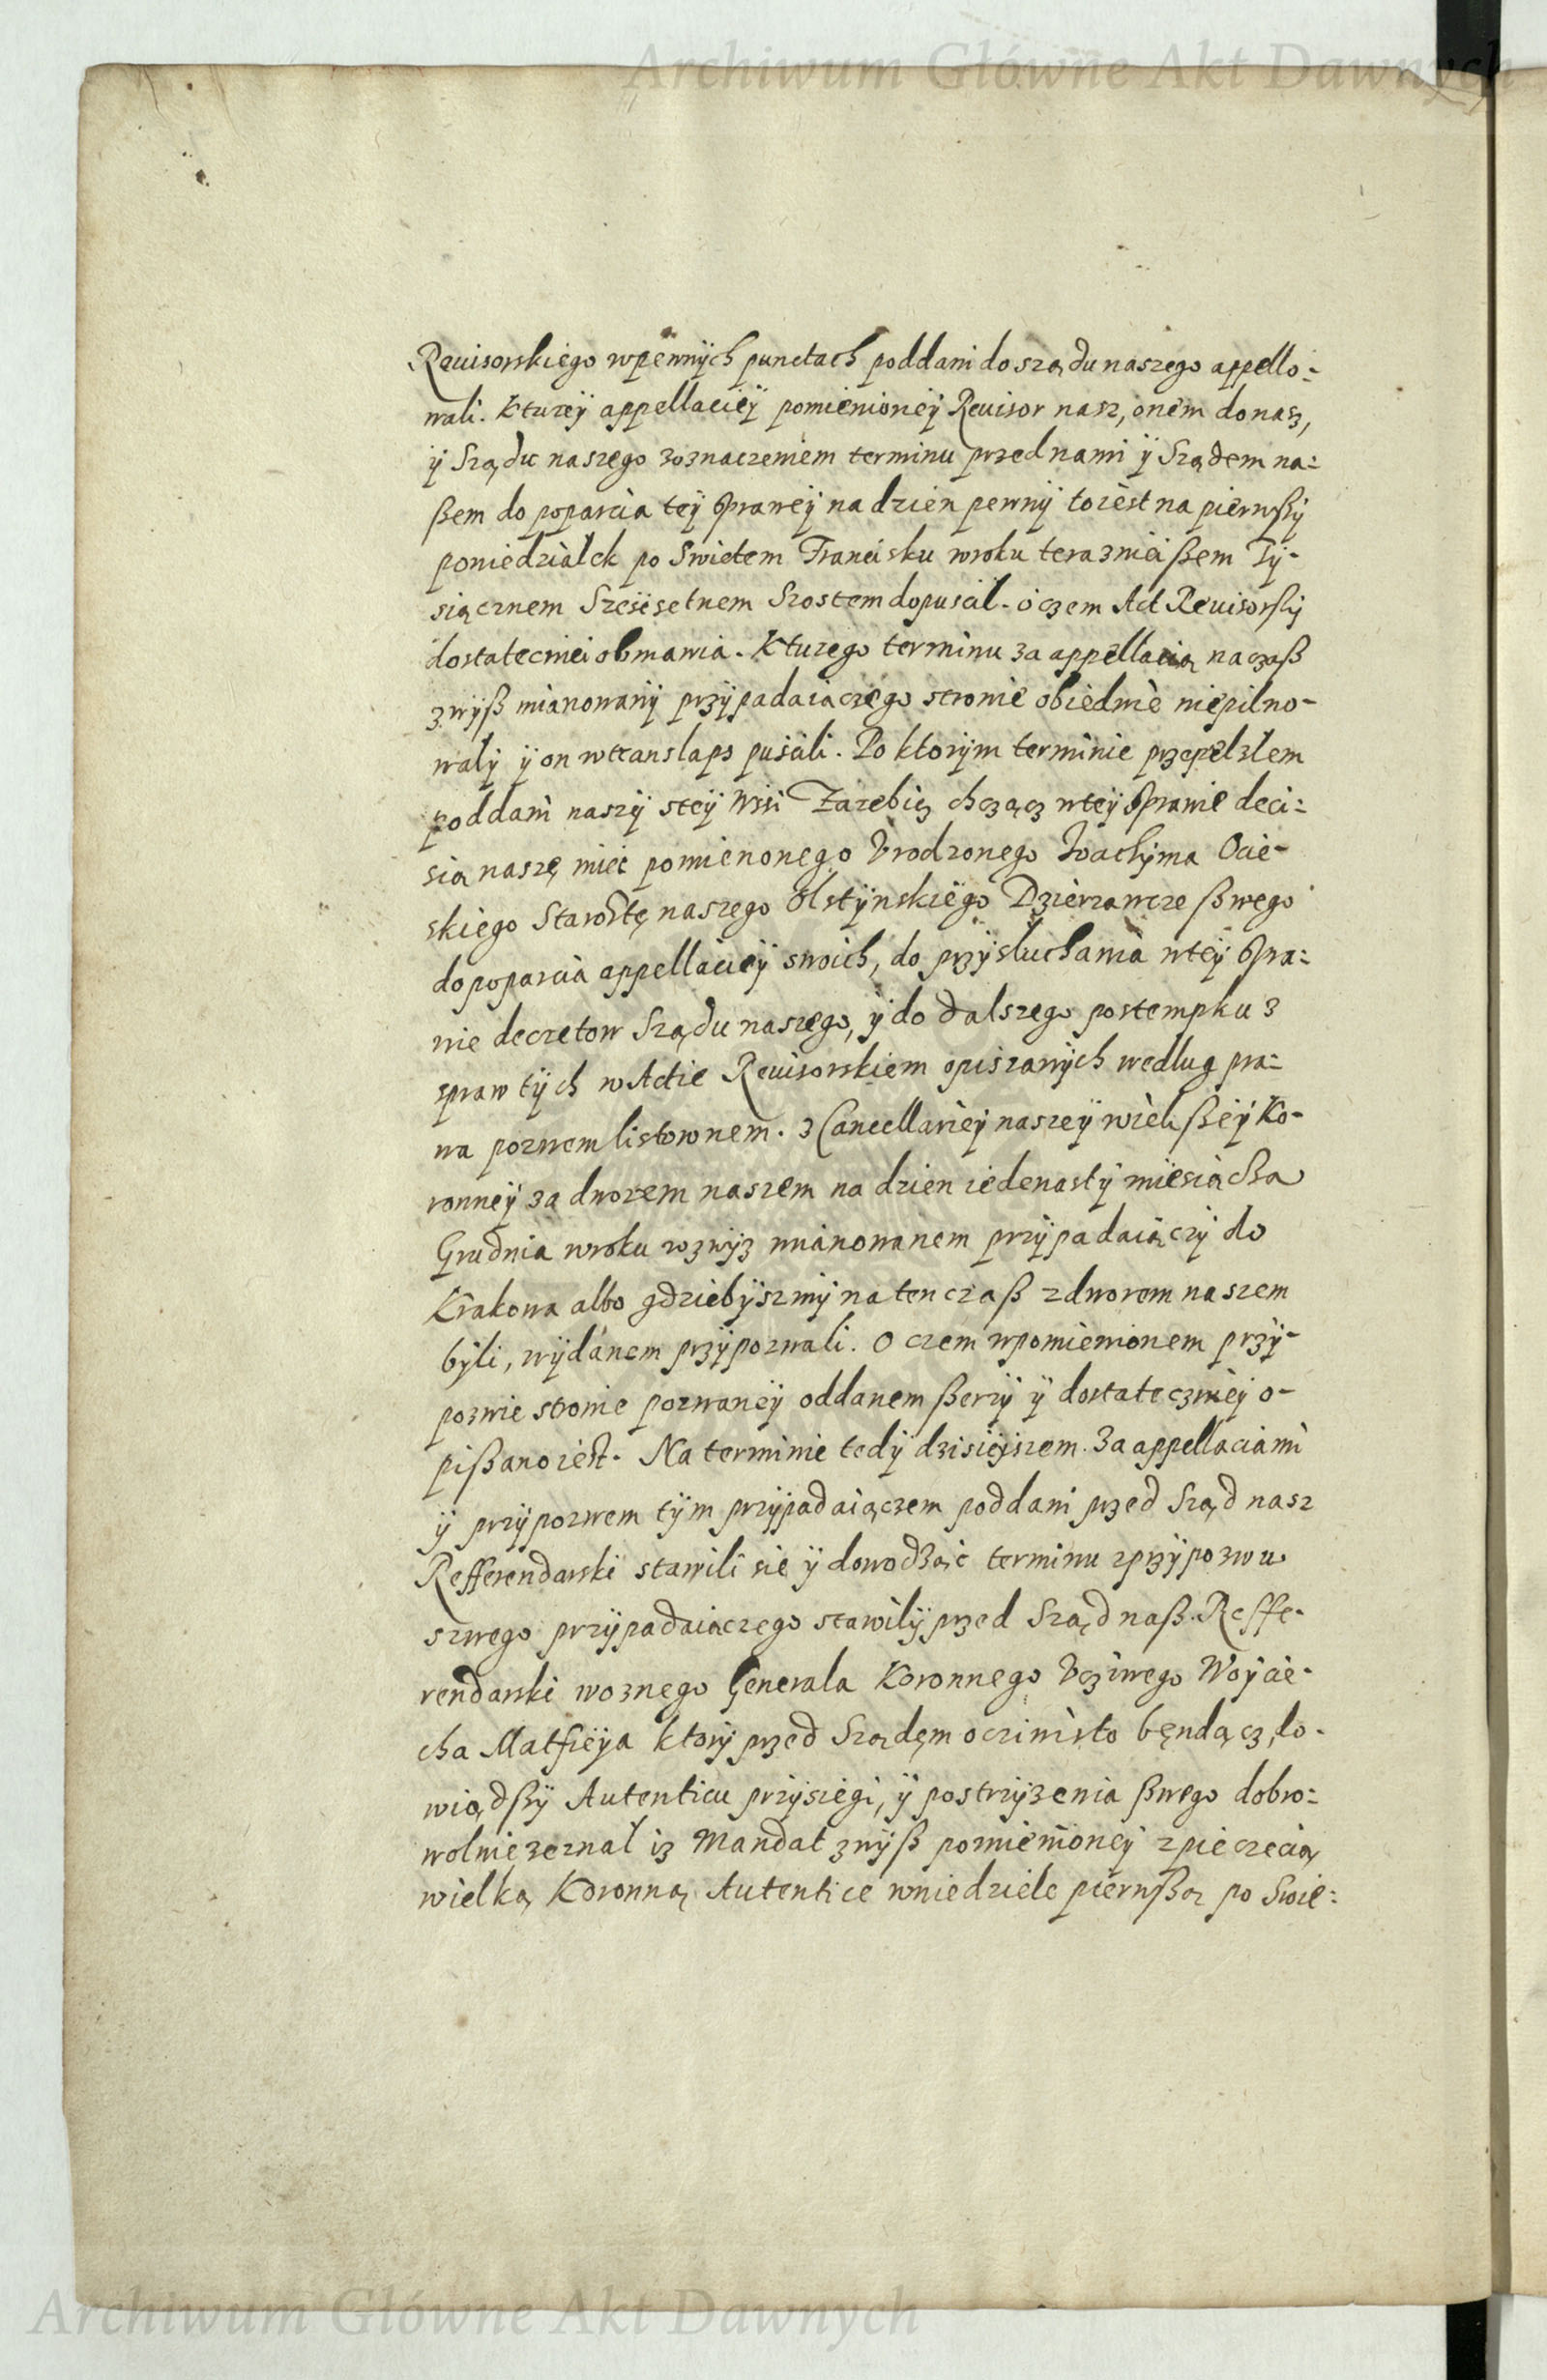 Archiwum Główne Akt Dawnych
Reuisorskiego wpewnÿch punctach poddani do sządu naszego appello=
wali. Ktureÿ appellacieÿ pomienioneÿ Reuisor nasz, onem do nasz,
ÿ Sządu naszego zoznaczeniem terminu przed nami ÿ Sządem na=
ßem do poparcia teÿ Spraweÿ na dzien pewnÿ to iest na pierwßÿ
poniedzialek po Swietem Francisku wroku teraznieißem Tÿ-
siącznem Szescsetnem Szostem dopuscil. o czem Act Reuisorskÿ
dostatecniei obmawia. Kturego terminu za appellacią na czaß
zwÿß mianowanÿ przÿpadaiaczego stronie obiedwie niepilno-
walÿ ÿ on wtranslaps puscili. Po ktorÿm terminie przepelzlem
poddani naszÿ steÿ Wsi Zarebicz chczącz wteÿ Sprawie deci=
sią naszę miec pomienonego Vrodzonego Joachÿma Ocie-
skiego Starostę naszego Olstÿnskiego Dzierzawcze ßwego
do poparcia appellacieÿ swoich, do przÿsluchania wteÿ Spra=
wie decretow Sządu naszego, ÿ do dalszego postempku z
spraw tÿch w Actie Reuisorskiem opiszanÿch wedlug pra=
wa pozwem listownem. z Cancellarieÿ naszeÿ wiekßeÿ Ko-
ronneÿ za dworem naszem na dzien iedenastÿ miesiącża
Grudnia wroku wzwÿz mianowanem przÿpadaiączÿ do
Krakowa albo gdziebÿszmÿ na ten czaß zdworem naszem
bÿli, wÿdanem przÿpozwali. O czem wpomienionem przÿ-
pozwie stronie pozwaneÿ oddanem ßerzÿ ÿ dostateczniey o-
pißano iest. Na terminie tedÿ dzisieÿszem. Za appellaciami
ÿ przÿpozwem tÿm przÿpadaiączem poddani przed Sząd nasz
Refferendarski stawili sie ÿ dowodząc terminu zprzÿpozwu
szwego przÿpadaiaczego stawilÿ przed Sząd naß Reffe-
rendarski woznego Generala Koronnego Vcziwego Woÿcie-
cha Matfieÿa ktorÿ przed Sządęm oczinisto będącz, do-
wiodßÿ Autenticu przÿsiegi, ÿ postrzÿzenia ßwego dobro=
wolnie zeznal iz Mandat zwÿß pomienioneÿ zpieczecią
wielką Koronną Autentice wniedziele pierwßą po Swie=
Archiwum Główne Akt Dawnych